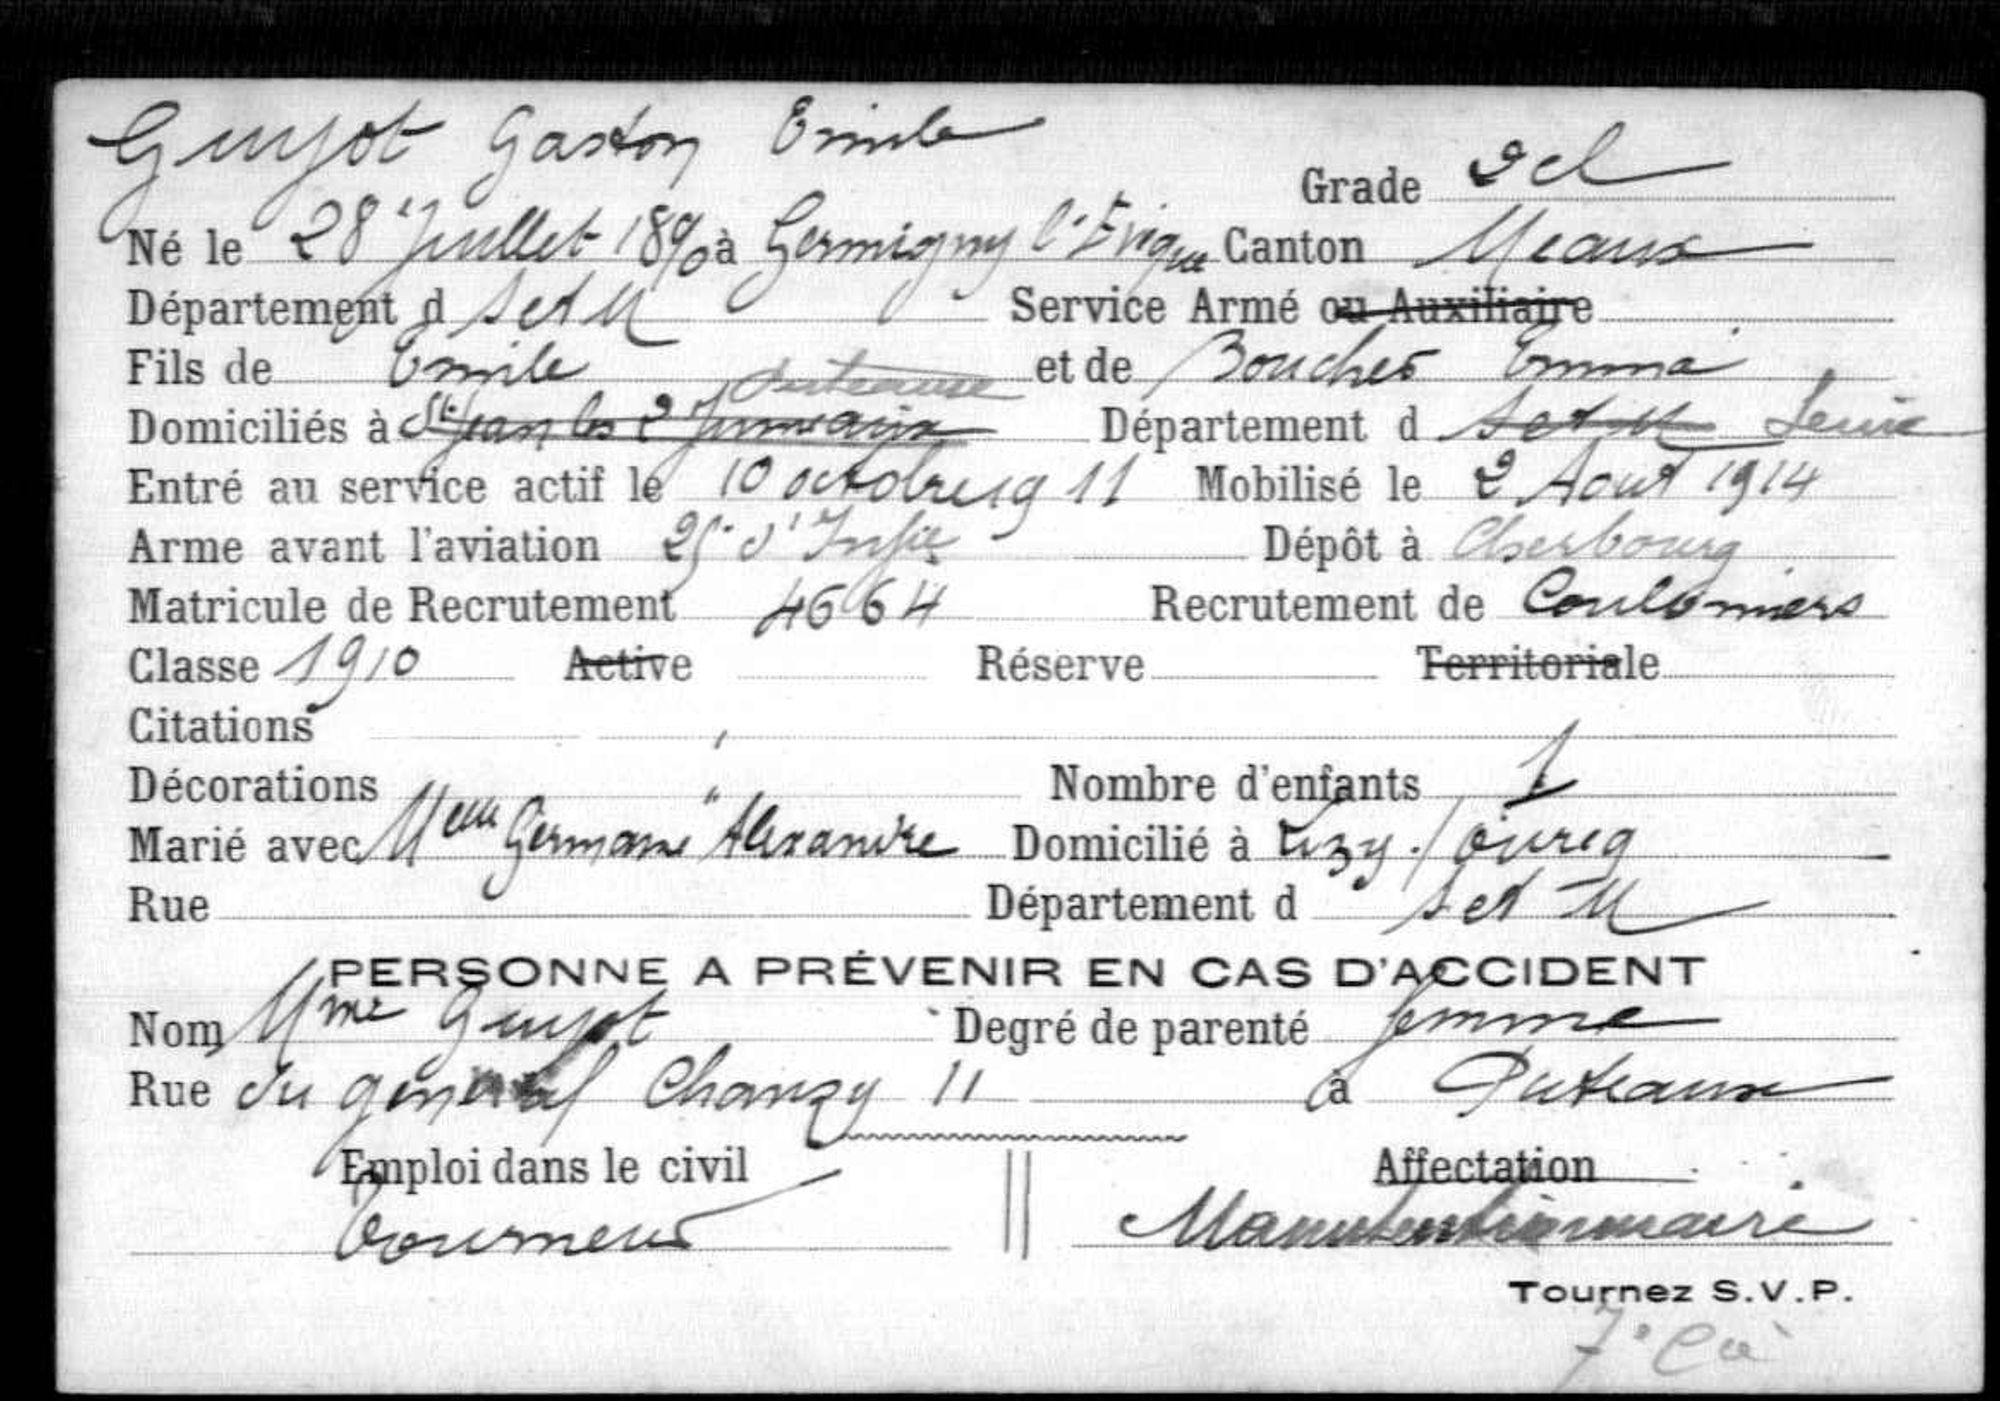 Guyot Gaston Emile
Grade 2 cl
Né le 28 Juillet 1890 à Germigny l'Evêque Canton Meaux
Département d S et M Service Armé ou Auxiliaire
Fils de Emile et de Boucher Emma
Puteaux
Domiciliés à St Jean les 2 Jumeaux Département d S et M Seine
Entré au service actif le 10 octobre 1911 Mobilisé le 2 Aout 1914
Arme avant l'aviation 25e d'Infie Dépôt à Cherbourg
Matricule de Recrutement 4664 Recrutement de Coulommiers
Classe 1910 Active Réserve Territoriale
Citations
Décorations " Nombre d'enfants 1
Marié avec Melle Germaine Alexandre Domicilié à Lizy s/ ourcq
Rue Département d S et M
PERSONNE A PRÉVENIR EN CAS D'ACCIDENT
Nom Mme Guyot Degré de parenté femme
Rue du général Chanzy 11 à Puteaux
Emploi dans le civil Affectation
Tourneur Manutentionnaire
Tournez S.V.P.
7e Cie